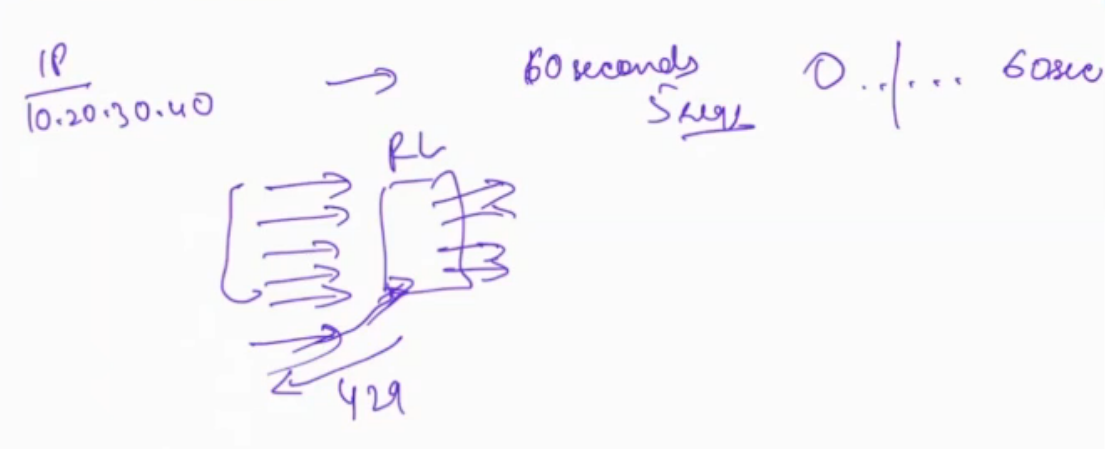 IP
10.20.30.40
60 seconds
5 reqs
0../... 60sec
RL
429